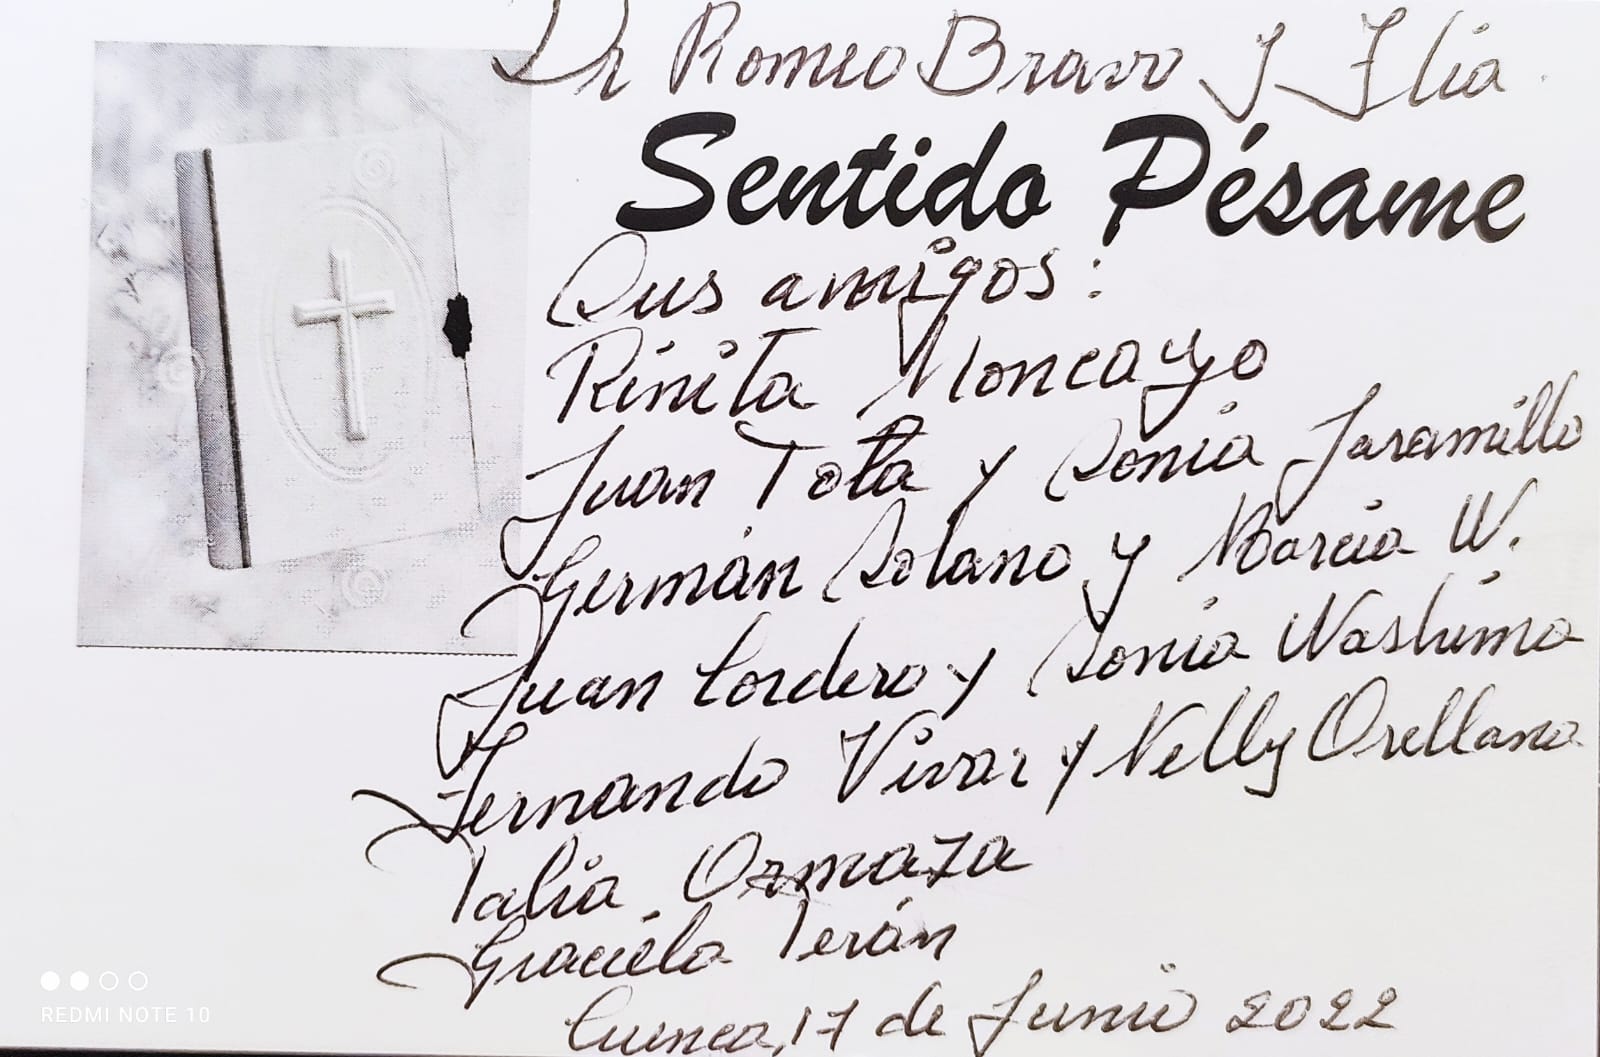 Dr Romeo Bravo y Ilia
Sentido Pésame
Sus amigos:
Rinita Moncayo
Juan Tola y Sonia Jaramillo
Germán Solano y Marcia W.
Juan Cordero y Sonia Washima
Fernando Vivar y Nelly Orellana
Talia Ormaza
Graciela Terán
Cuenca, 17 de Junio 2022
REDMI NOTE 10